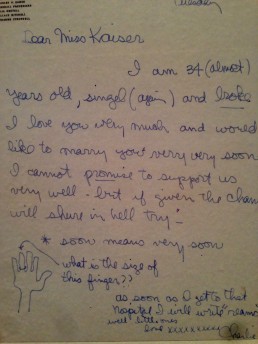 Tuesday
Dear Miss Kaiser
I am 34 (almost)
years old, singel (again) and broke
I love you very mush and would
like to marry you verry very soon
I cannot promise to support us
very well - but if given the chan
will shure in hell try -
* soon means very soon
what is the size of
this finger??
as soon as I get to that
hospital I will write "reams"
well little ones
love xxxxxxxx